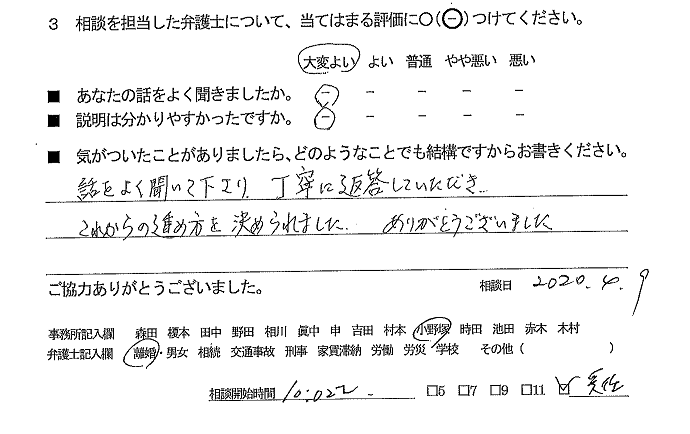 3 相談を担当した弁護士について、当てはまる評価に○(⊖)つけてください。
大変よい よい 普通 やや悪い 悪い
■ あなたの話をよく聞きましたか。 － － － － －
■ 説明は分かりやすかったですか。 － － － － －
■ 気がついたことがありましたら、どのようなことでも結構ですからお書きください。
話をよく聞いて下さり、丁寧に返答していただき
これからの進め方を決められました。 ありがとうございました
ご協力ありがとうございました。 相談日 2020.4.9
事務所記入欄 森田 榎本 田中 野田 相川 眞中 申 吉田 村本 小野塚 時田 池田 赤木 木村
弁護士記入欄 離婚・男女 相続 交通事故 刑事 家賃滞納 労働 労災 学校 その他( )
相談開始時間 10:02 □5 □7 □9 □11 ☑ 受任